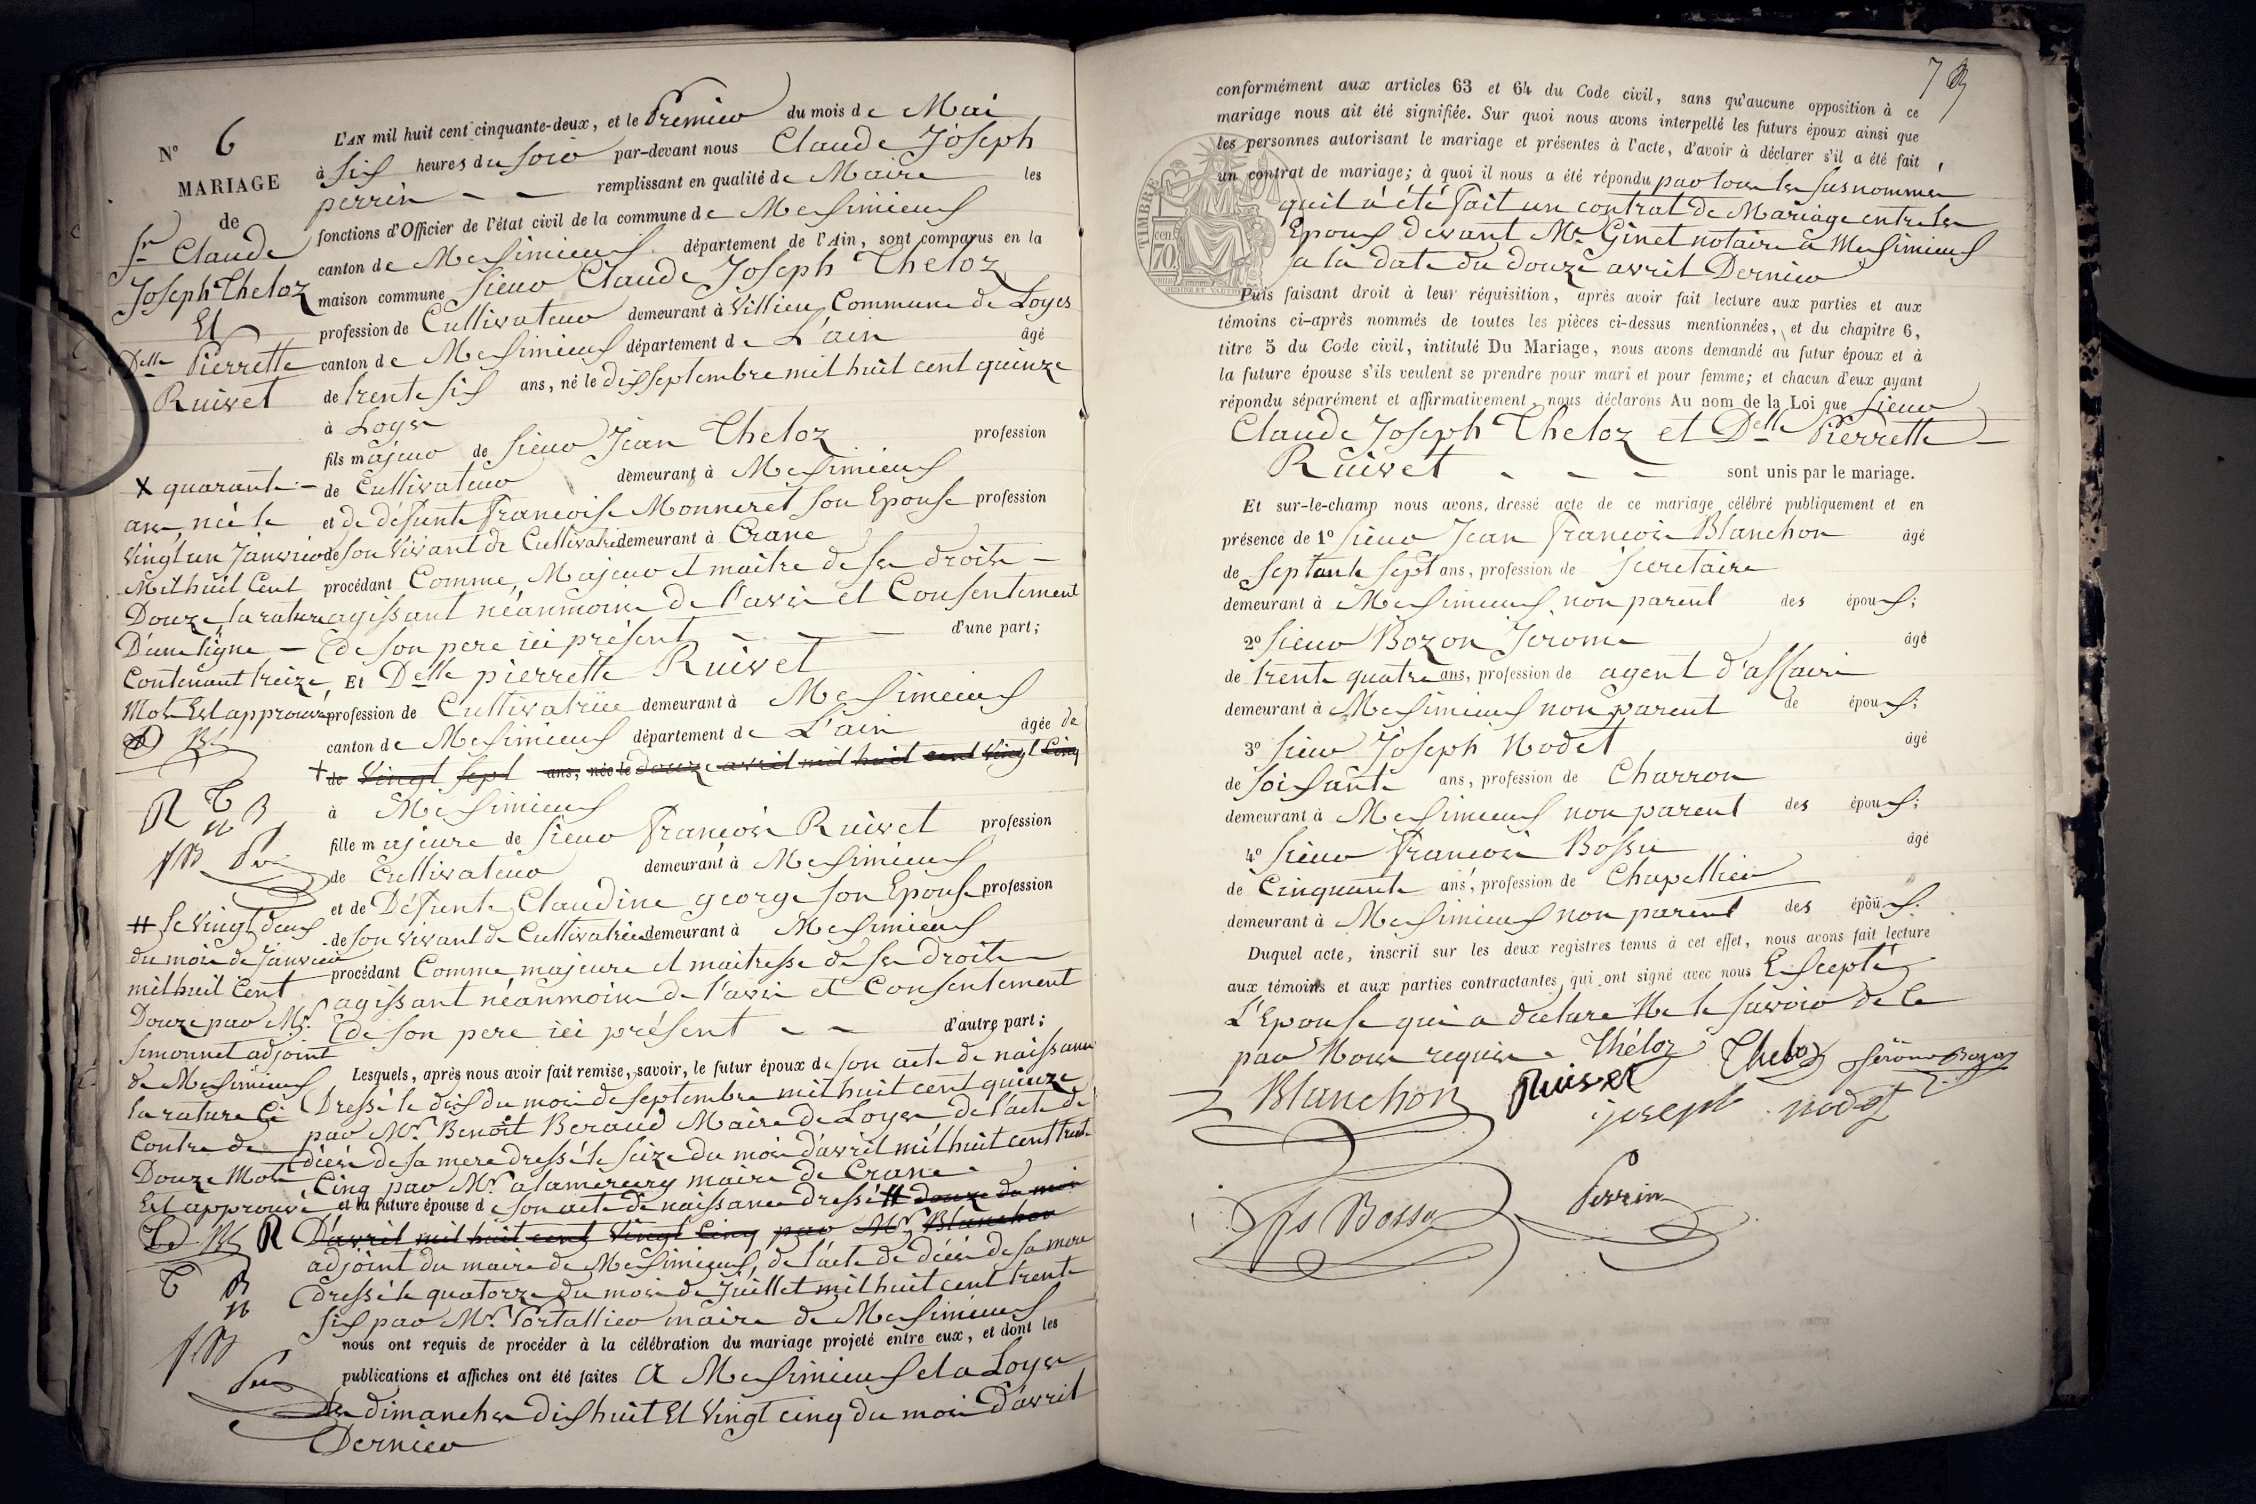 N° 6
MARIAGE
de
Sr Claude
Joseph Theloz
Et
Delle Pierrette
Ruivet
X quarante
ans, née le
Vingt un Janvier
Mil huit Cent
Douze, la rature
D'une ligne
Contenant treize
Mots Est approuvé
# Le Vingt deux
du mois de Janvier
mil huit Cent
Douze par Mr.
Simonnet adjoint
de Meximieux
la rature Ci
Contre de
Douze Mots
Est approuvé
L'AN mil huit cent cinquante-deux, et le Premier du mois de Mai
à six heures du soir par-devant nous Claude Joseph
perrin remplissant en qualité de Maire les
fonctions d'Officier de l'état civil de la commune de Meximieux
canton de Meximieux département de l'Ain, sont comparus en la
maison commune Sieur Claude Joseph Theloz
profession de Cultivateur demeurant à Villieu Commune de Loyes
canton de Meximieux département de L'ain âgé
de trente six ans, né le dix septembre mil huit cent quinze
à Loyes
fils majeur de Sieur Jean Theloz profession
de Cultivateur demeurant à Meximieux
et de défunte Francoise Monneret son Epouse profession
de son vivant de Cultivatrice demeurant à Crane
procédant Comme, Majeur et maitre de ses droits
agissant néanmoins de l'avis et Consentement
de son pere ici présent d'une part;
Et Delle pierrette Ruivet
profession de Cultivatrice demeurant à Meximieux
canton de Meximieux département de L'ain âgée de
+ de Vingt sept ans, née le douze avril mil huit cent Vingt Cinq
à Meximieux
fille majeure de Sieur Francois Ruivet profession
de Cultivateur demeurant à Meximieux
et de Défunte Claudine george son Epouse profession
de son vivant de Cultivatrice demeurant à Meximieux
procédant Comme majeure et maitresse de ses droits
agissant néanmoins de l'avis et Consentement
de son pere ici présent d'autre part;
Lesquels, après nous avoir fait remise, savoir, le futur époux de son acte de naissance
Dressé le dix du mois de septembre mil huit cent quinze
par Mr. Benoît Beraud Maire de Loyes, de l'acte de
décès de sa mere dressé le seize du mois d'avril mil huit cent trente
Cinq par Mr. alamercery maire de Crane
et la future épouse de son acte de naissance dressé # douze du mois
D'avril mil huit cent Vingt Cinq par Mr. Blanchon
adjoint du maire de Meximieux, de l'acte de décès de sa mere
dressé le quatorze du mois de Juillet mil huit cent trente
six par Mr. Portallier maire de Meximieux
nous ont requis de procéder à la célébration du mariage projeté entre eux, et dont les
publications et affiches ont été faites A Meximieux et a Loyes
les dimanches dix huit Et Vingt cinq du mois D'avril
Dernier
7
conformément aux articles 63 et 64 du Code civil, sans qu'aucune opposition à ce
mariage nous ait été signifiée. Sur quoi nous avons interpellé les futurs époux ainsi que
les personnes autorisant le mariage et présentes à l'acte, d'avoir à déclarer s'il a été fait
un contrat de mariage; à quoi il nous a été répondu par tous les susnommés
quil à été fait un contrat de Mariage entre les
Epoux devant Mr. Ginet notaire à Meximieux
a la date du douze avril Dernier
TIMBRE
70 cen
Puis faisant droit à leur réquisition, après avoir fait lecture aux parties et aux
témoins ci-après nommés de toutes les pièces ci-dessus mentionnées, et du chapitre 6,
titre 5 du Code civil, intitulé Du Mariage, nous avons demandé au futur époux et à
la future épouse s'ils veulent se prendre pour mari et pour femme; et chacun d'eux ayant
répondu séparément et affirmativement, nous déclarons Au nom de la Loi que Sieur
Claude Joseph Theloz et Delle Pierrette
Ruivet sont unis par le mariage.
Et sur-le-champ nous avons, dressé acte de ce mariage célébré publiquement et en
présence de 1° Sieur Jean Francois Blanchon âgé
de septante sept ans, profession de Secretaire
demeurant à Meximieux non parent des époux;
2° Sieur Bozon Jérome âgé
de trente quatre ans, profession de agent d'affaires
demeurant à Meximieux non parent de époux;
3° Sieur Joseph Nodet âgé
de soixante ans, profession de Charron
demeurant à Meximieux non parent des époux;
4° Sieur Francois Bossu âgé
de Cinquante ans, profession de Chapellier
demeurant à Meximieux non parent des époux.
Duquel acte, inscrit sur les deux registres tenus à cet effet, nous avons fait lecture
aux témoins et aux parties contractantes, qui ont signé avec nous Excepté
L'Epouse qui a déclaré Ne le savoir de ce
par Nous requise. Théloz Theloz Jérôme Bozon
Blanchon Ruivet joseph nodet
fs Bossu Perrin